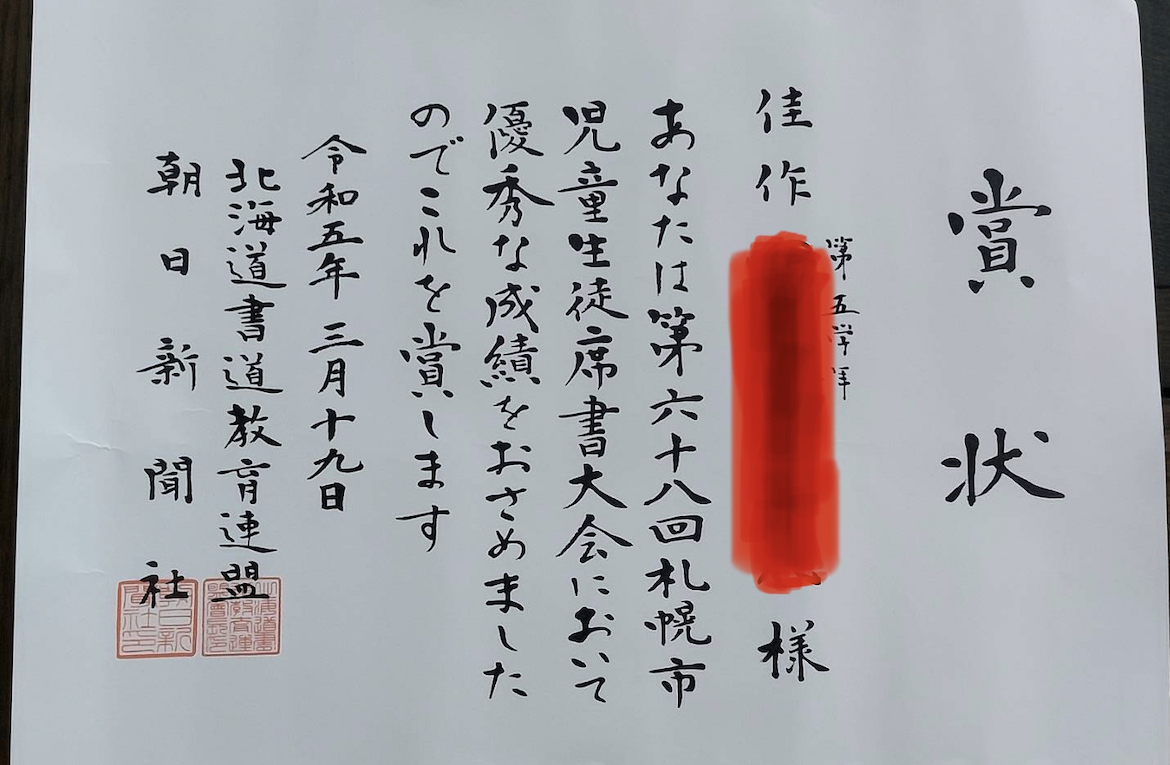 賞状
佳作
第五学年
様
あなたは第六十八回札幌市
児童生徒席書大会において
優秀な成績をおさめました
のでこれを賞します
令和五年三月十九日
北海道書道教育連盟
朝日新聞社